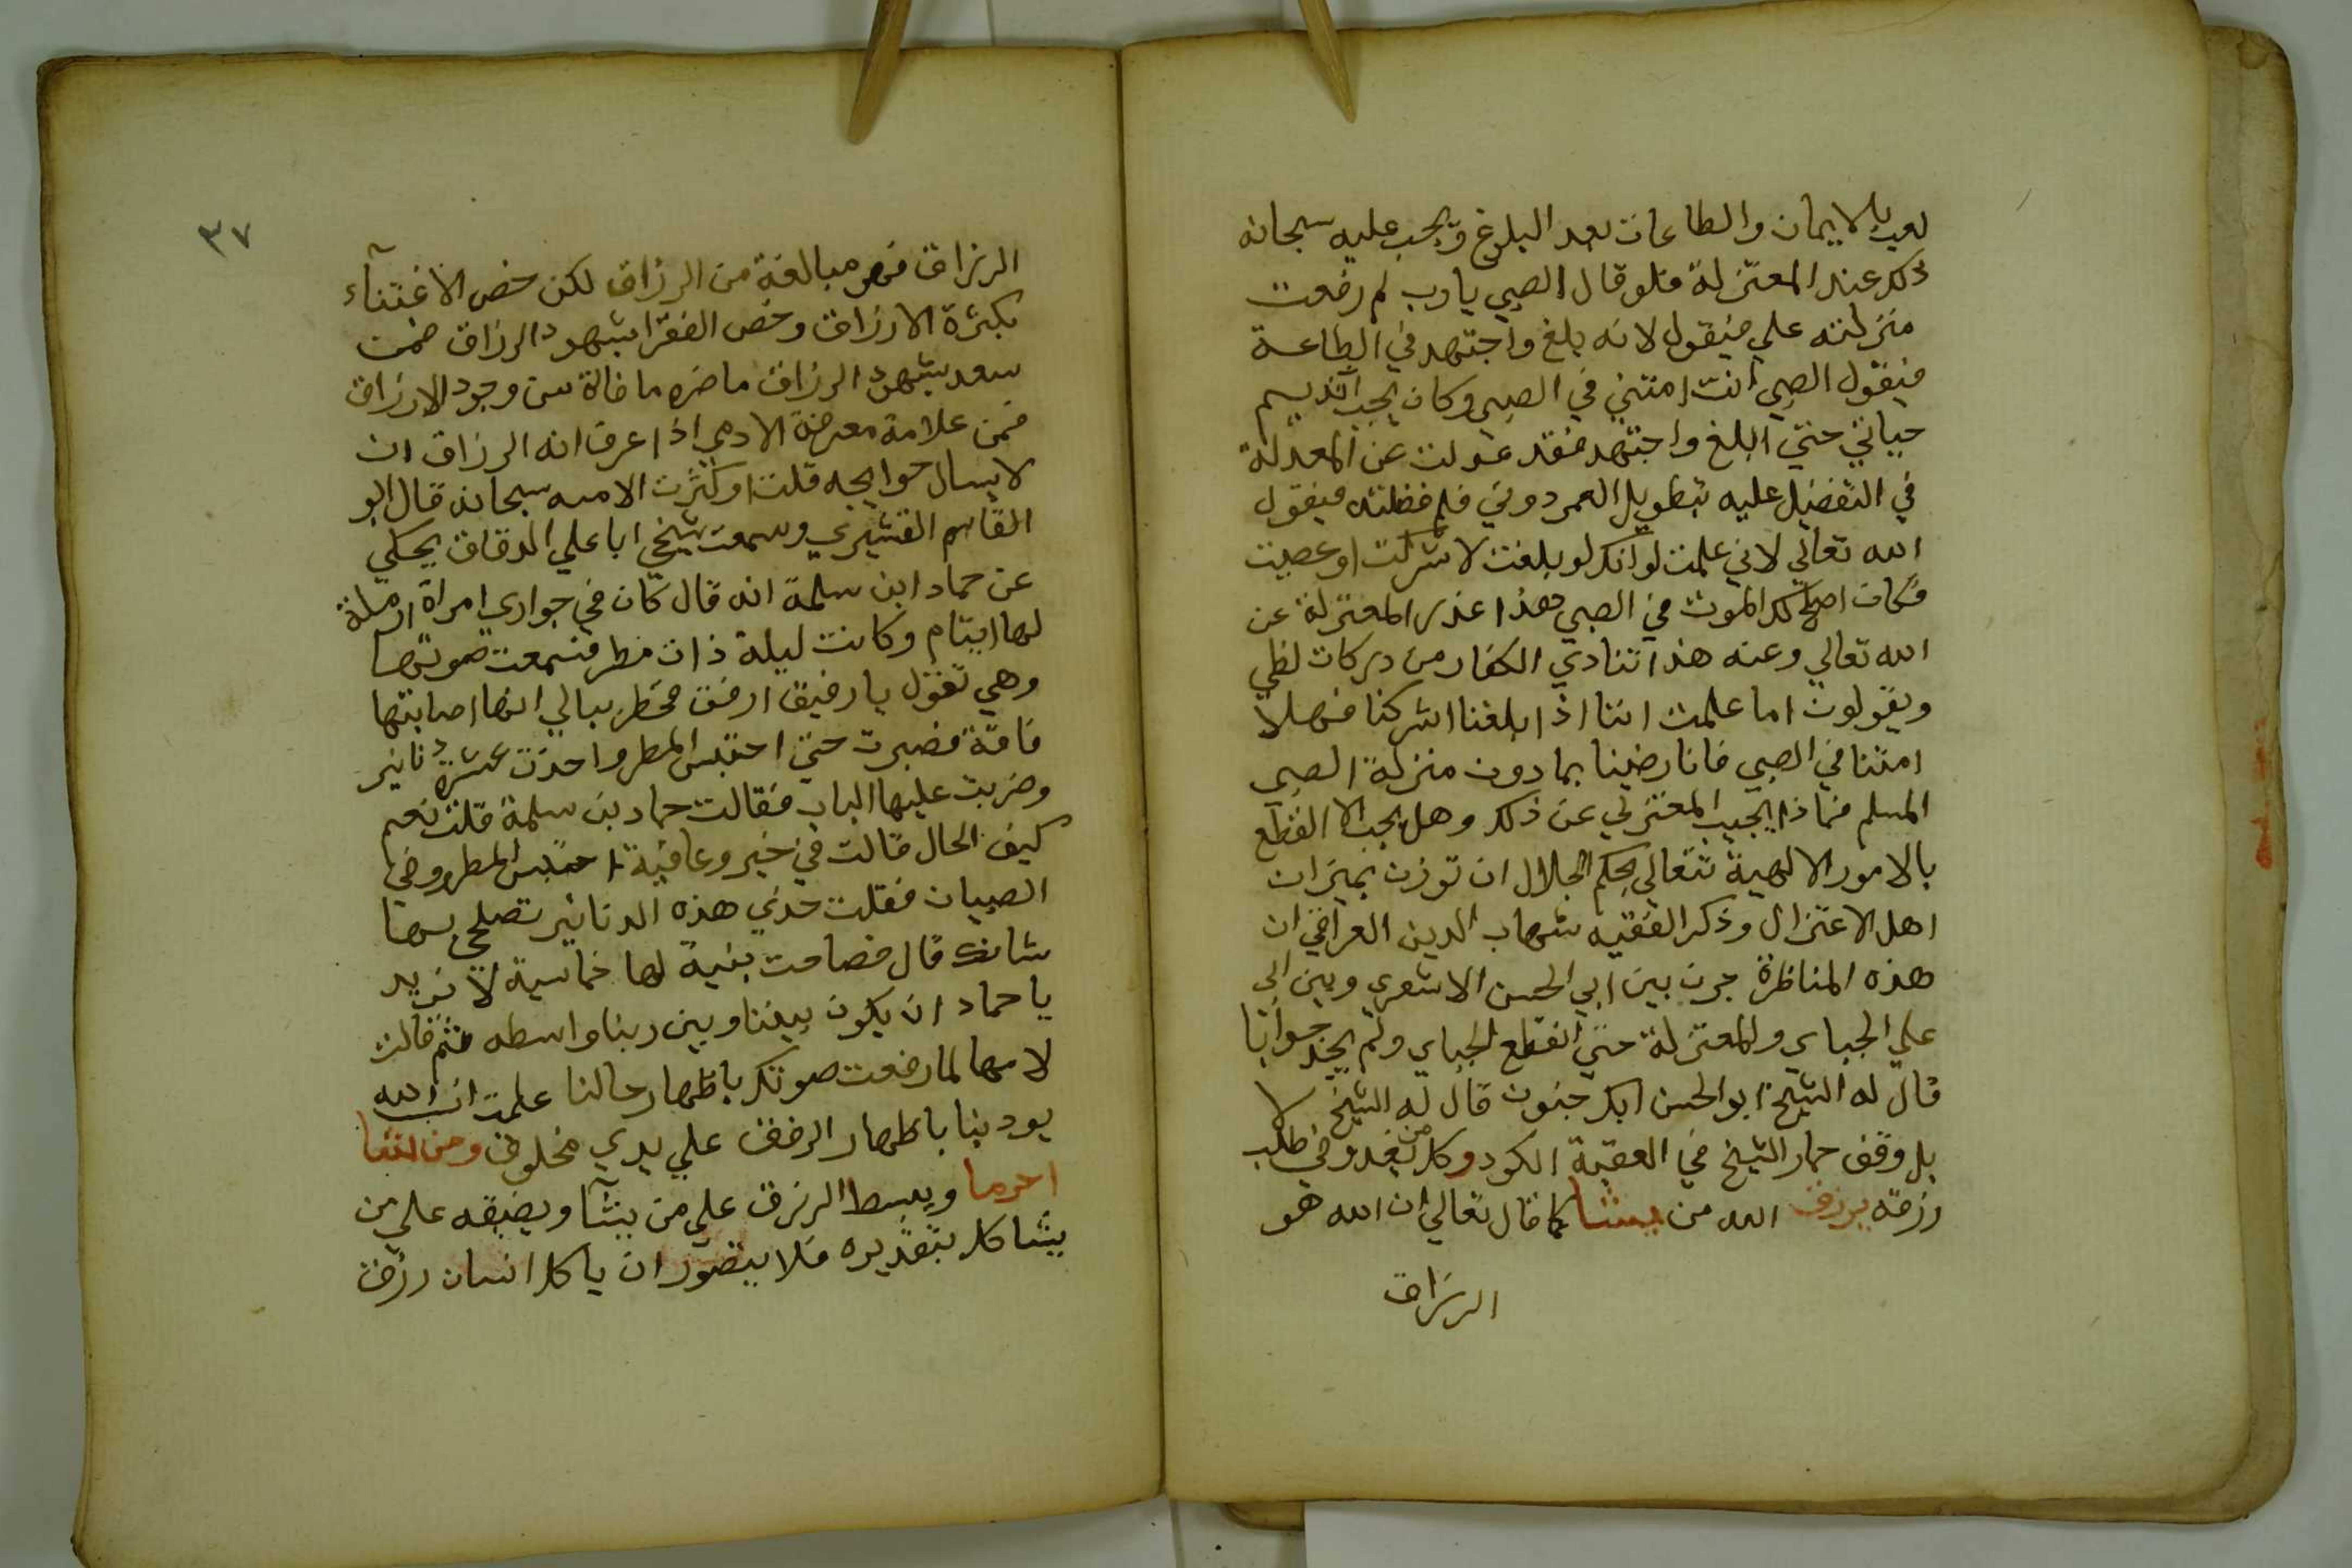 لعب بالايمان والطاعات بعد البلوغ ويجب عليه سبحانه
ذلك عند المعتزلة فلو قال الصبي يارب لم رفعت
منزلته علي فيقول لانه بلغ واجتهد في الطاعة
فيقول الصبي انت امتني في الصبي وكان يجب ان تديم
حياتي حتي ابلغ واجتهد فقد عدلت عن المعدلة
في التفضيل عليه بتطويل العمر دوني فلم فظلته فيقول
الله تعالي لاني علمت لو انك لو بلغت لاشركت او عصيت
فكان اصلح لك الموت في الصبي هذا عذر المعتزلة عن
الله تعالي وعنه هذا تنادي الكفار من دركات لظي
ويقولون اما علمت اننا اذا بلغنا اشركنا فهلا
امتنا في الصبي فانا رضينا بما دون منزلة الصبي
المسلم فماذا يجيب المعتزلي عن ذلك وهل يجب الا القطع
بالامور الالهية تتعالي بحكم الجلال ان توزن بميزان
اهل الاعتزال وذكر الفقيه شهاب الدين العراقي ان
هذه المناظرة جرت بين ابي الحسن الاشعري وبين ابي
علي الجباي والمعتزلة حتي انقطع الجباي ولم يجد جوابا
قال له الشيخ ابو الحسن ابك جنون قال له الشيخ لا
بل وقف حمار الشيخ في العقبة الكود وكل من يغدو في طلب
رزقه يرزق الله من يشا كما قال تعالي ان الله هو
الرزاق
٣٧
الرزاق فهو مبالغة من الرزاق لكن خص الاغتناء
بكثرة الارزاق وخص الفقرا بشهود الرزاق فمن
سعد بشهود الرزاق ما ضره ما فاته من وجود الارزاق
فمن علامة معرفة الادمي اذا عرف انه الرزاق ان
لا يسال حوايجه قلت او كثرت الا منه سبحانه قال ابو
القاسم القشيري وسمعت شيخي ابا علي الدقاق يحكي
عن حماد ابن سلمة انه قال كان في جواري امراة ارملة
لها ايتام وكانت ليلة ذات مطر فسمعت صوتها
وهي تقول يا رفيق ارفق فخطر ببالي انها اصابتها
فاقة فصبرت حتي احتبس المطر واخذت عشرة دنانير
وضربت عليها الباب فقالت حماد بن سلمة قلت نعم
كيف الحال قالت في خير وعافية احتبس المطر ودفي
الصبيان فقلت خذي هذه الدنانير تصلحي بها
شانك قال فصاحت بنية لها خماسية لا نريد
يا حماد ان يكون بيننا وبين ربنا واسطه ثم قالت
لامها لما رفعت صوتك باظهار حالنا علمت ان الله
يودبنا باظهار الرفق علي يدي مخلوق ومن يشا
احرما ويبسط الرزق علي من يشآ ويضيقه علي من
يشا كل بتقديره فلا يتصور ان ياكل انسان رزق